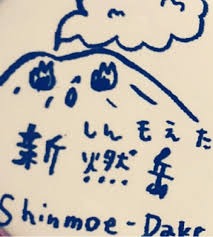 しんもえた
新燃岳
Shinmoe-Dake